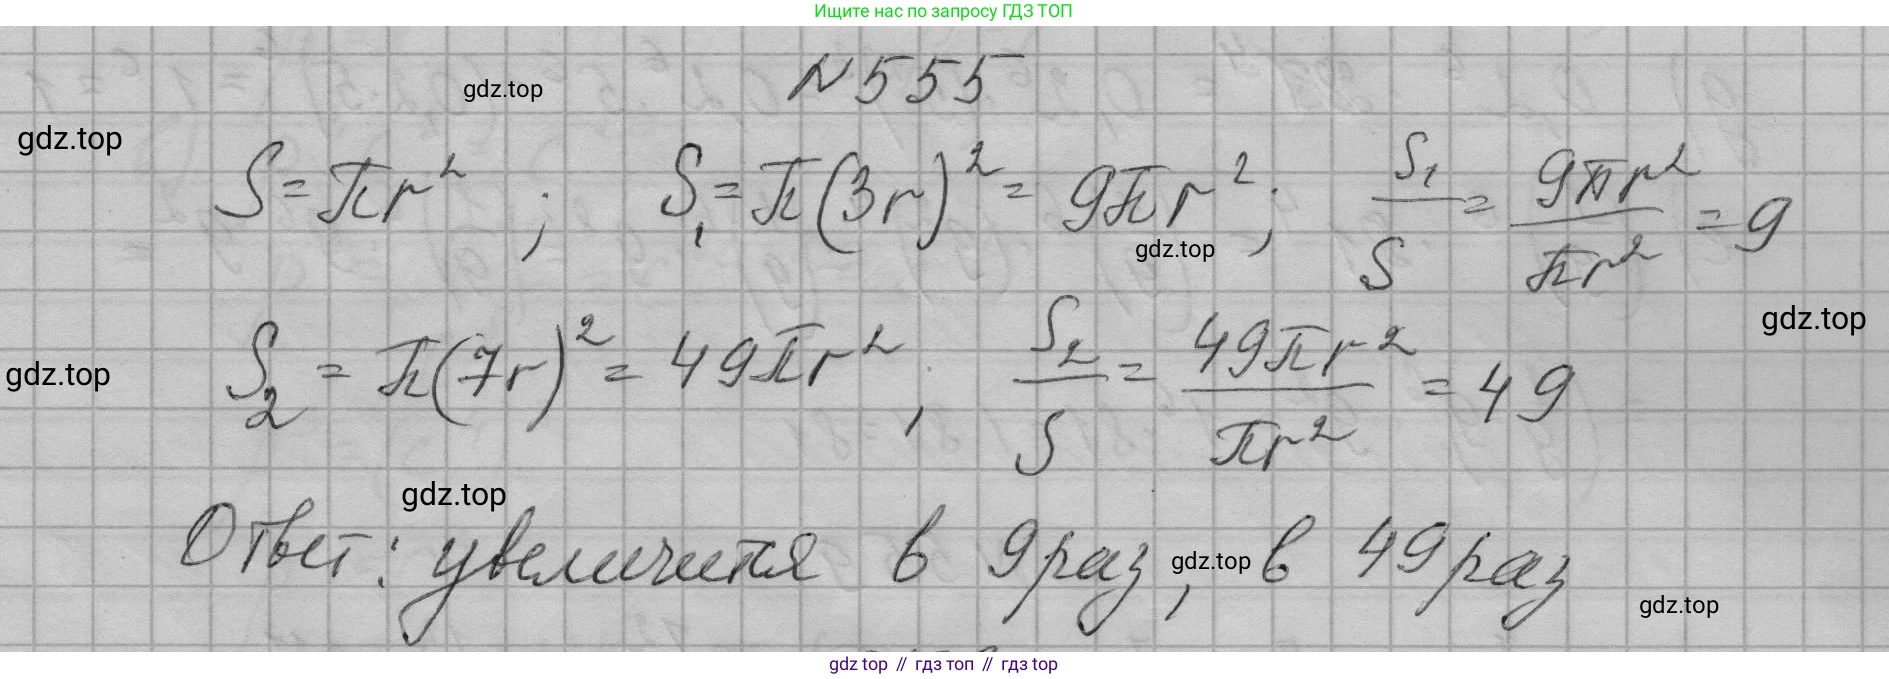 Ищите нас по запросу ГДЗ ТОП
N 555
gdz.top
gdz.top
S = πr² ; S₁ = π(3r)² = 9πr² ; S₁/S = 9πr²/πr² = 9
gdz.top
gdz.top
S₂ = π(7r)² = 49πr² ; S₂/S = 49πr²/πr² = 49
gdz.top
gdz.top
Ответ: увеличится в 9 раз, в 49 раз
gdz.top
gdz.top
gdz top // гдз топ // гдз top